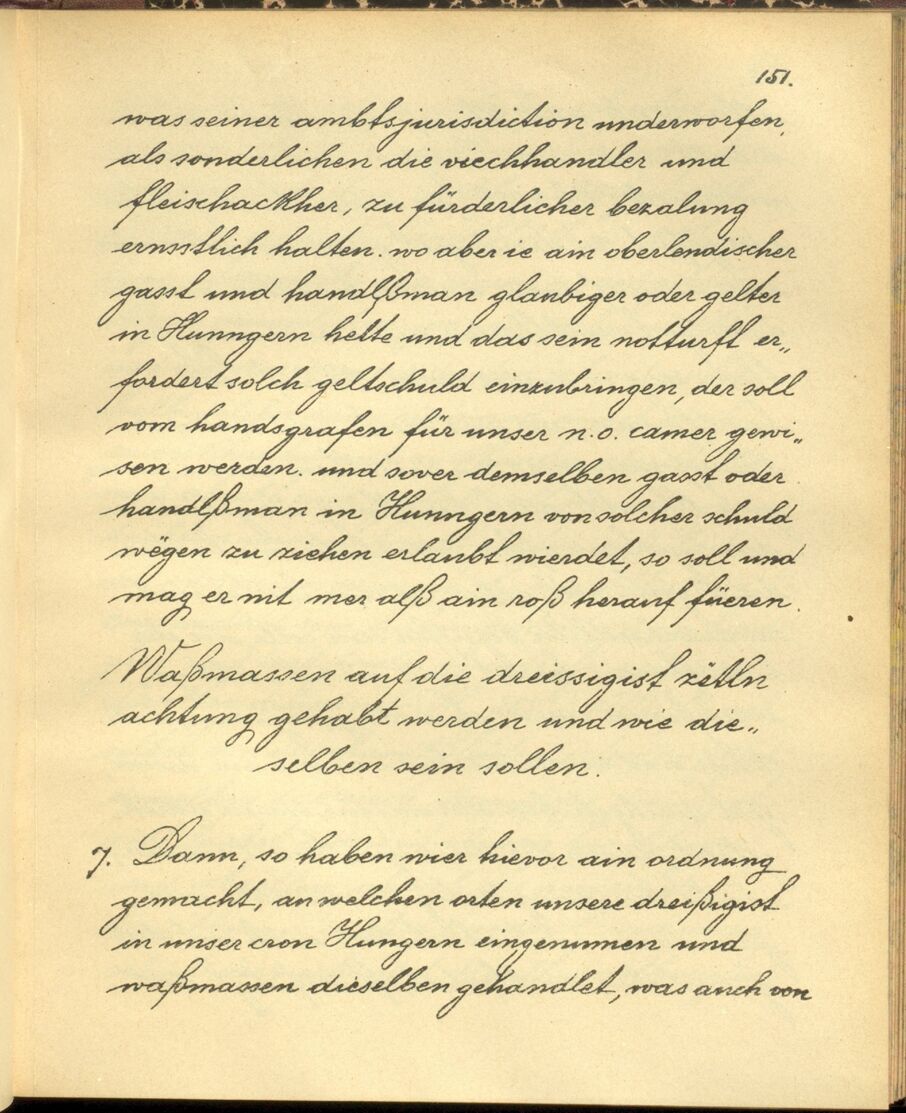 151.
was seiner ambtsjurisdiction underworfen,
als sonderlichen die viechhandler und
fleischackher, zu fürderlicher bezalung
ernsstlich halten. wo aber ie ain oberlendischer
gasst und handlßman glaubiger oder gelter
in Hunngern hette und das sein notturft er„
fordert solch geltschuld einzubringen, der soll
vom handsgrafen für unser n. o. camer gewi„
sen werden. und sover demselben gasst oder
handlßman in Hunngern von solcher schuld
wëgen zu ziehen erlaubt wierdet, so soll und
mag er nit mer alß ain roß herauf füeren.
Waßmassen auf die dreissigist zëtln
achtung gehabt werden und wie die„
selben sein sollen.
7. Dann, so haben wier hievor ain ordnung
gemacht, an welchen orten unsere dreißigist
in unser cron Hungern eingenumen und
waßmassen dieselben gehandlet, was auch von